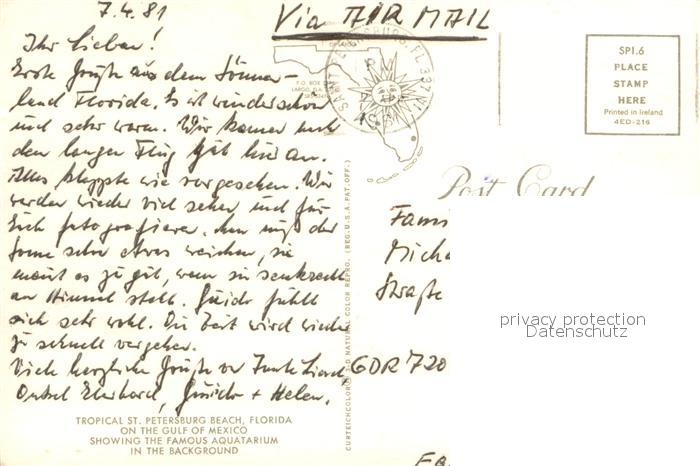 7.4.81
Via AIR MAIL
Ihr Lieben!
Erste Grüße aus dem Sonnen-
land Florida. Es ist wunderschön
und sehr warm. Wir kamen nach
dem langen Flug gut hier an.
Alles klappte wie vorgesehen. Wir
werden wieder viel sehen und für
Euch fotografieren. Nur muß der
Sonne sehr etwas weichen, sie
meint es zu gut, wenn sie senkrecht
am Himmel steht. Guido fühlt
sich sehr wohl. Die Zeit wird wieder
zu schnell vergehen.
Viele herzliche Grüße von Tante
Onkel Eberhard, Guido + Helen.
TROPICAL ST. PETERSBURG BEACH, FLORIDA
ON THE GULF OF MEXICO
SHOWING THE FAMOUS AQUATARIUM
IN THE BACKGROUND
CURTEICHCOLOR® 3-D NATURAL COLOR REPRO. (REG. U.S.A. PAT. OFF.)
SAINT PETERSBURG, FL 337
PM
P.O. BOX
LARGO, FLA.
SPI.6
PLACE
STAMP
HERE
Printed in Ireland
4ED-216
Post Card
Fami
Mich
Straße
GDR 720
privacy protection
Datenschutz